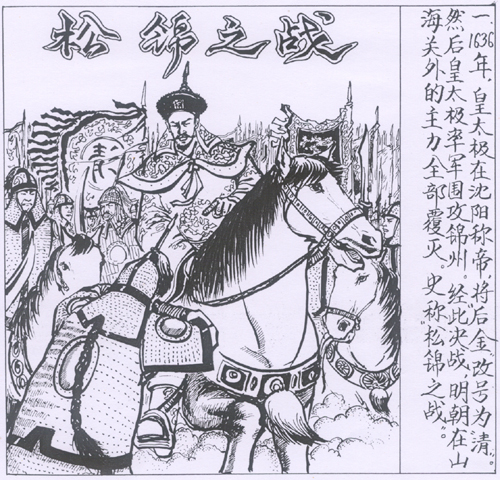 松锦之战
一1636年,皇太极在沈阳称帝,将后金改号为“清”。
然后皇太极率军围攻锦州。经此决战,明朝在山
海关外的主力全部覆灭。史称“松锦之战”。